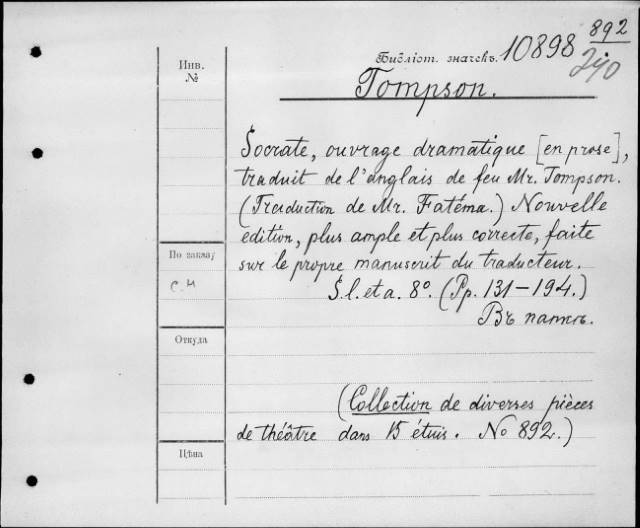 892
Библіот. значекъ. 10898
240
Инв.
№
Tompson.
Socrate, ouvrage dramatique [en prose],
traduit de l'anglais de feu Mr. Tompson.
(Traduction de Mr. Fatéma.) Nouvelle
edition, plus ample et plus correcte, faite
sur le propre manuscrit du traducteur.
S. l. et a. 8°. (Pp. 131-194.)
Въ папкѣ.
По заказу
Откуда
(Collection de diverses pièces
de théâtre dans 15 étuis. No 892.)
Цѣна